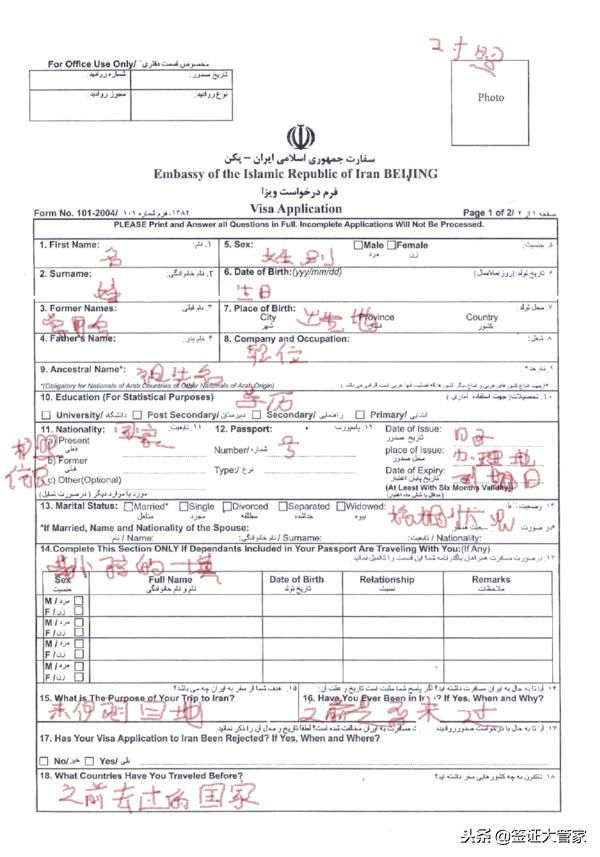 2寸照
For Office Use Only/ مخصوص قسمت دفتری
تاریخ صدور: شماره روادید:
نوع روادید: مجوز روادید:
Photo
سفارت جمهوری اسلامی ایران – پکن
Embassy of the Islamic Republic of Iran BEIJING
فرم درخواست ویزا
Form No. 101-2004/ فرم شماره ۱۰۱-۱۳۸۲ Visa Application Page 1 of 2/ صفحه ۱ از ۲
PLEASE Print and Answer all Questions in Full. Incomplete Applications Will Not Be Processed.
1. First Name: ۱. نام: 5. Sex: Male مرد Female زن ۵. جنسیت:
名 性别
2. Surname: ۲. نام خانوادگی: 6. Date of Birth:(yyy/mm/dd) ۶. تاریخ تولد (روز/ماه/سال)
姓 生日
3. Former Names: ۳. نام قبلی: 7. Place of Birth: ۷. محل تولد
曾用名 City شهر 出生地 Province Country کشور
4. Father's Name: ۴. نام پدر: 8. Company and Occupation: ۸. شغل:
职位
9. Ancestral Name*: ۹. نام جد*:
祖先名
*(Obligatory for Nationals of Arab Countries or Other Nationals of Arab Origin)
10. Education (For Statistical Purposes) ۱۰. تحصیلات: (جهت استفاده آماری)
学历
University/ دانشگاه Post Secondary/ دبیرستان Secondary/ راهنمایی Primary/ ابتدایی
11. Nationality: ۱۱. تابعیت: 12. Passport: ۱۲. پاسپورت: Date of Issue: تاریخ صدور
国家 日子
护照信息
(a) Present فعلی Number/ شماره: 号 place of Issue: محل صدور 办理地
b) Former قبلی Type:/ نوع: Date of Expiry: تاریخ پایان اعتبار 到期日
c) Other(Optional) (At Least With Six Months Validity)
مورد یا موارد دیگر (در صورت تمایل) (حداقل با شش ماه اعتبار)
13. Marital Status: Married* متاهل Single مجرد Divorced مطلقه Separated جداشده Widowed: بیوه ۱۳. وضعیت
婚姻状况
*If Married, Name and Nationality of the Spouse:
نام / Name: نام خانوادگی / Surname: تابعیت / Nationality:
14.Complete This Section ONLY If Dependants Included in Your Passport Are Traveling With You:(If Any)
带小孩的填
Sex جنسیت Full Name نام و نام خانوادگی Date of Birth تاریخ تولد Relationship نسبت Remarks ملاحظات
M / مرد
F / زن
M / مرد
F / زن
M / مرد
F / زن
M / مرد
F / زن
15. What is The Purpose of Your Trip to Iran? ۱۵. هدف شما از سفر به ایران چه می باشد؟
来伊朗目地
16. Have You Ever Been in Iran? If Yes, When and Why?
之前是否来过
17. Has Your Visa Application to Iran Been Rejected? If Yes, When and Where?
No/ خیر Yes/ بلی
18. What Countries Have You Traveled Before? ۱۸. تاکنون به چه کشورهایی سفر داشته اید؟
之前去过的国家
头条 @签证大管家